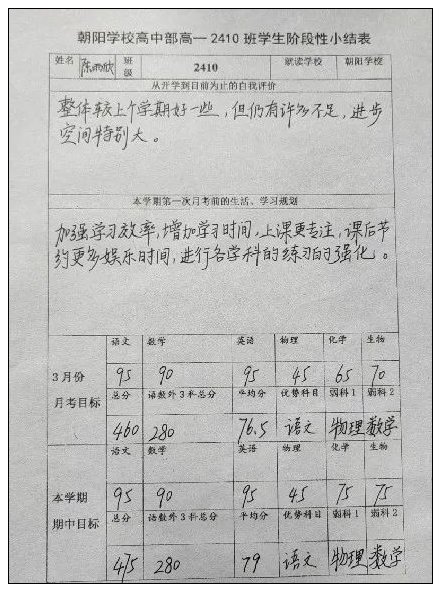 朝阳学校高中部高一 2410 班学生阶段性小结表
姓名 陈雨欣 班级 2410 就读学校 朝阳学校
从开学到目前为止的自我评价
整体较上个学期好一些，但仍有许多不足，进步
空间特别大。
本学期第一次月考前的生活、学习规划
加强学习效率，增加学习时间，上课更专注，课后节
约更多娱乐时间，进行各学科的练习的强化。
3 月份月考目标
语文 数学 英语 物理 化学 生物
95 90 95 45 65 70
总分 语数外 3 科总分 平均分 优势科目 弱科 1 弱科 2
460 280 76.5 语文 物理 数学
本学期期中目标
语文 数学 英语 物理 化学 生物
95 90 95 45 75 75
总分 语数外 3 科总分 平均分 优势科目 弱科 1 弱科 2
475 280 79 语文 物理 数学